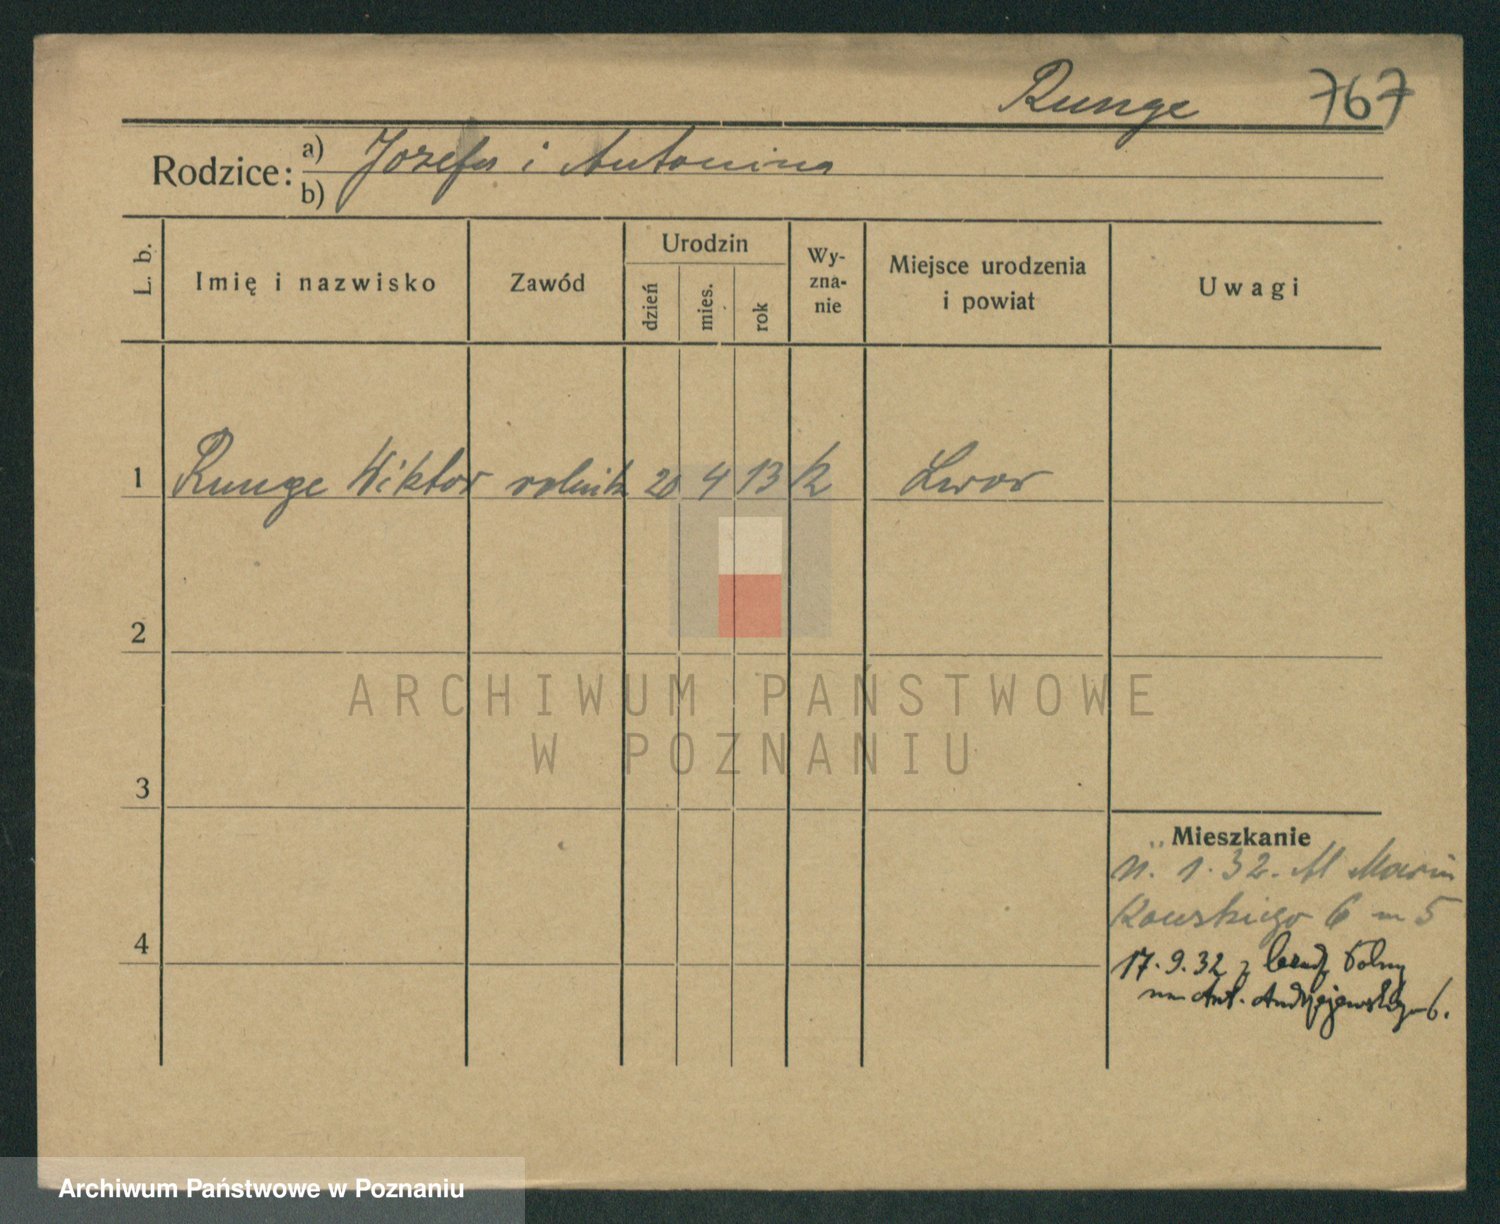 Runge 767
Rodzice: a) Jozefa i Antonina
b)
L. b.
Imię i nazwisko
Zawód
Urodzin
dzień
mies.
rok
Wy-
zna-
nie
Miejsce urodzenia
i powiat
Uwagi
1 Runge Wiktor rolnik 20 4 13 k Lwow
2
ARCHIWUM PAŃSTWOWE
W POZNANIU
3
Mieszkanie
1.32. M
6 m 5
4
17.9.32 z
na Ant. Andrzejewskiego 6.
Archiwum Państwowe w Poznaniu